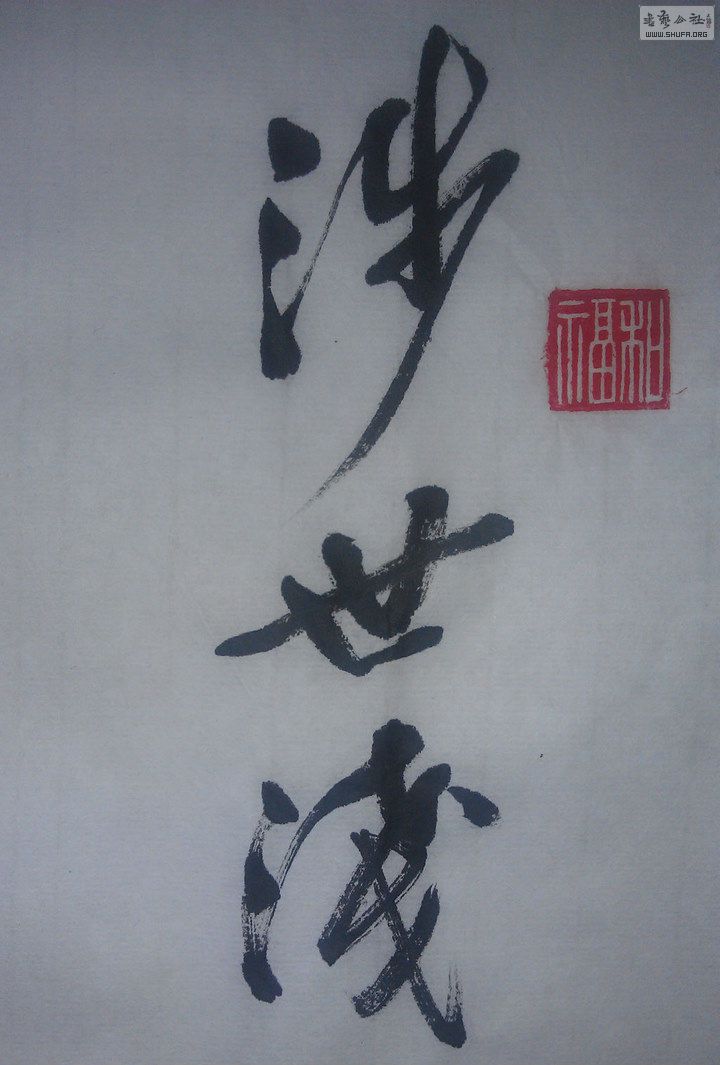 書藝公社
WWW.SHUFA.ORG
涉世浅
和福